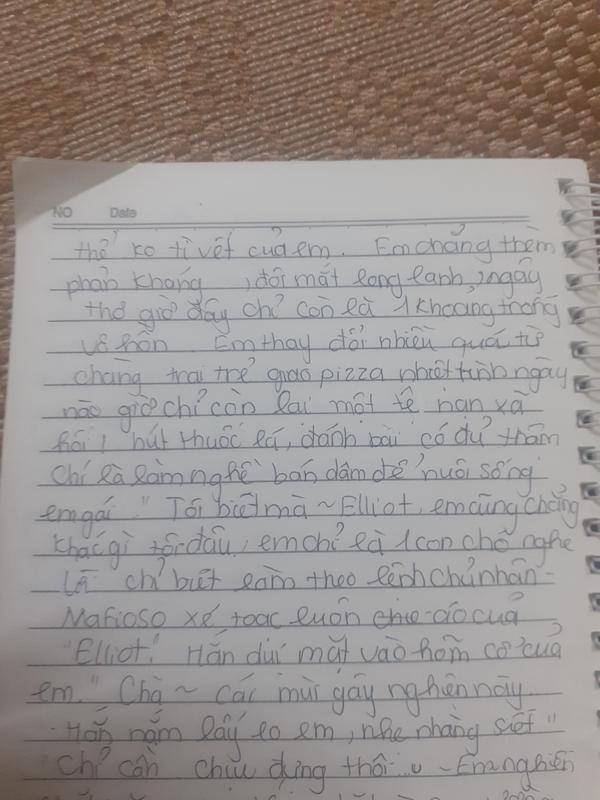 NO Date
thể ko tì vết của em. Em chẳng thèm
phản kháng , đôi mắt long lanh, ngây
thơ giờ đây chỉ còn là 1 khoang trống
vô hồn Em thay đổi nhiều quá từ
chàng trai trẻ giao pizza nhiệt tình ngày
nào giờ chỉ còn lại một tệ nạn xã
hội, hút thuốc lá, đánh bài có đủ thậm
chí là làm nghề bán dâm để nuôi sống
em gái. " Tôi biết mà ~ Elliot, em cũng chẳng
khác gì tôi đâu, em chỉ là 1 con chó nghe
lời chỉ biết làm theo lệnh chủ nhân -
Mafioso xé toạc luôn áo của
"Elliot". Hắn dúi mặt vào hõm cổ của
em. " Chà ~ các mùi gây nghiện này
Hắn nắm lấy eo em, nhẹ nhàng siết "
Chỉ cần chịu đựng thôi ~ Em nghiến